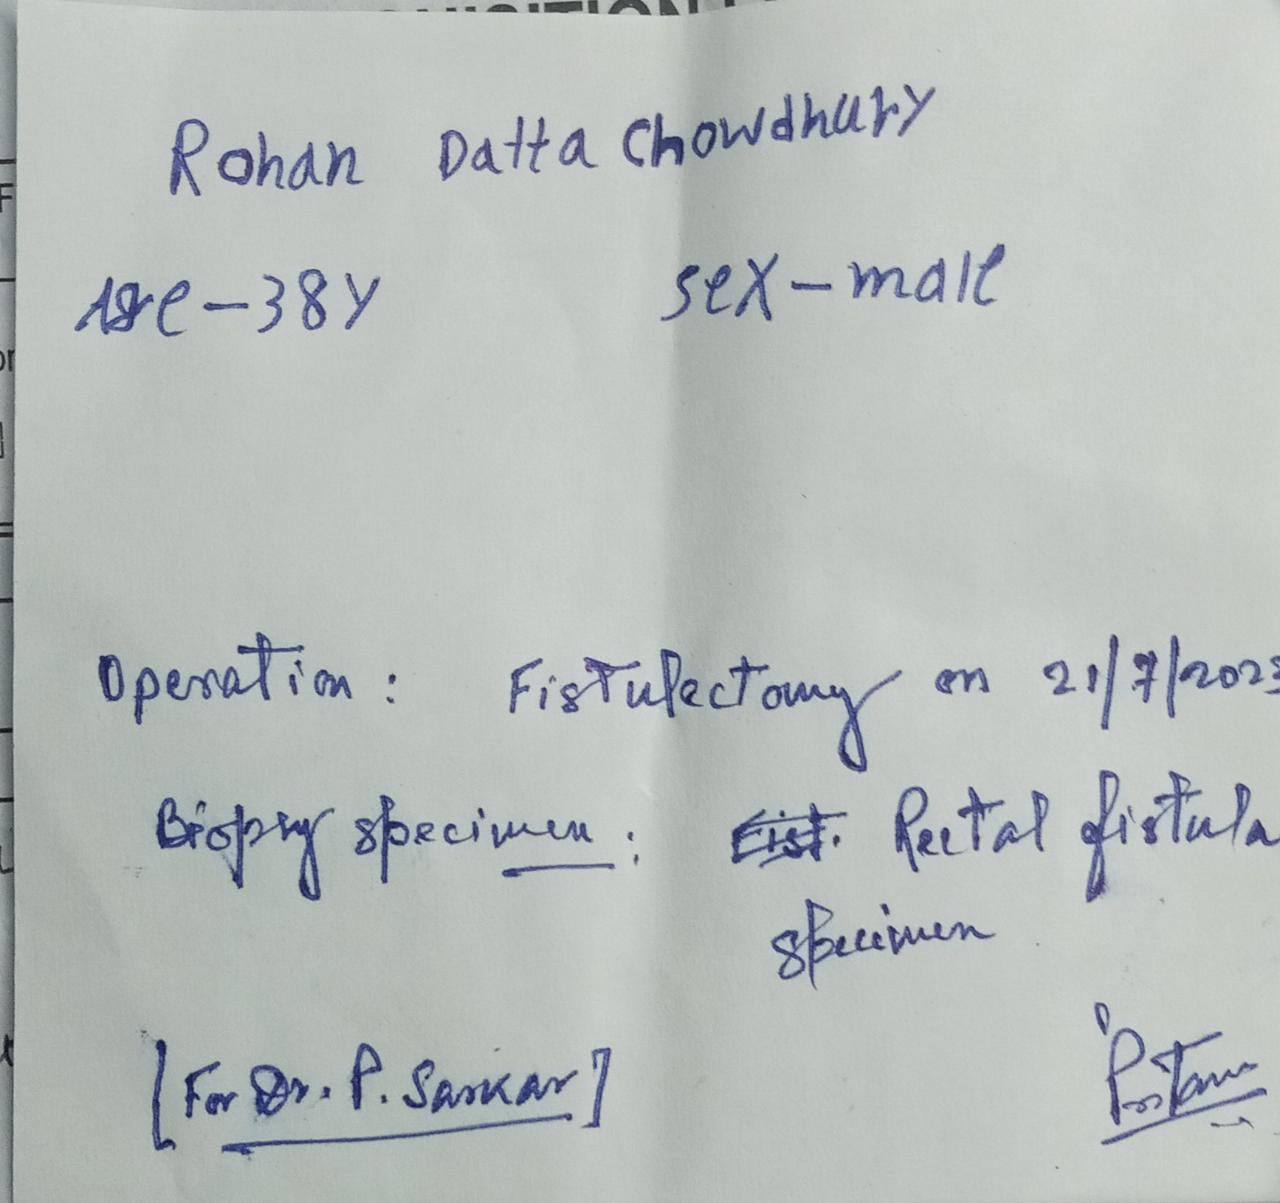 Rohan Datta Chowdhury
Age-38Y sex-male
Operation: Fistulectomy on 21/7/2023
Biopsy specimen: Rectal fistula
specimen
[For Dr. P. Sarkar]